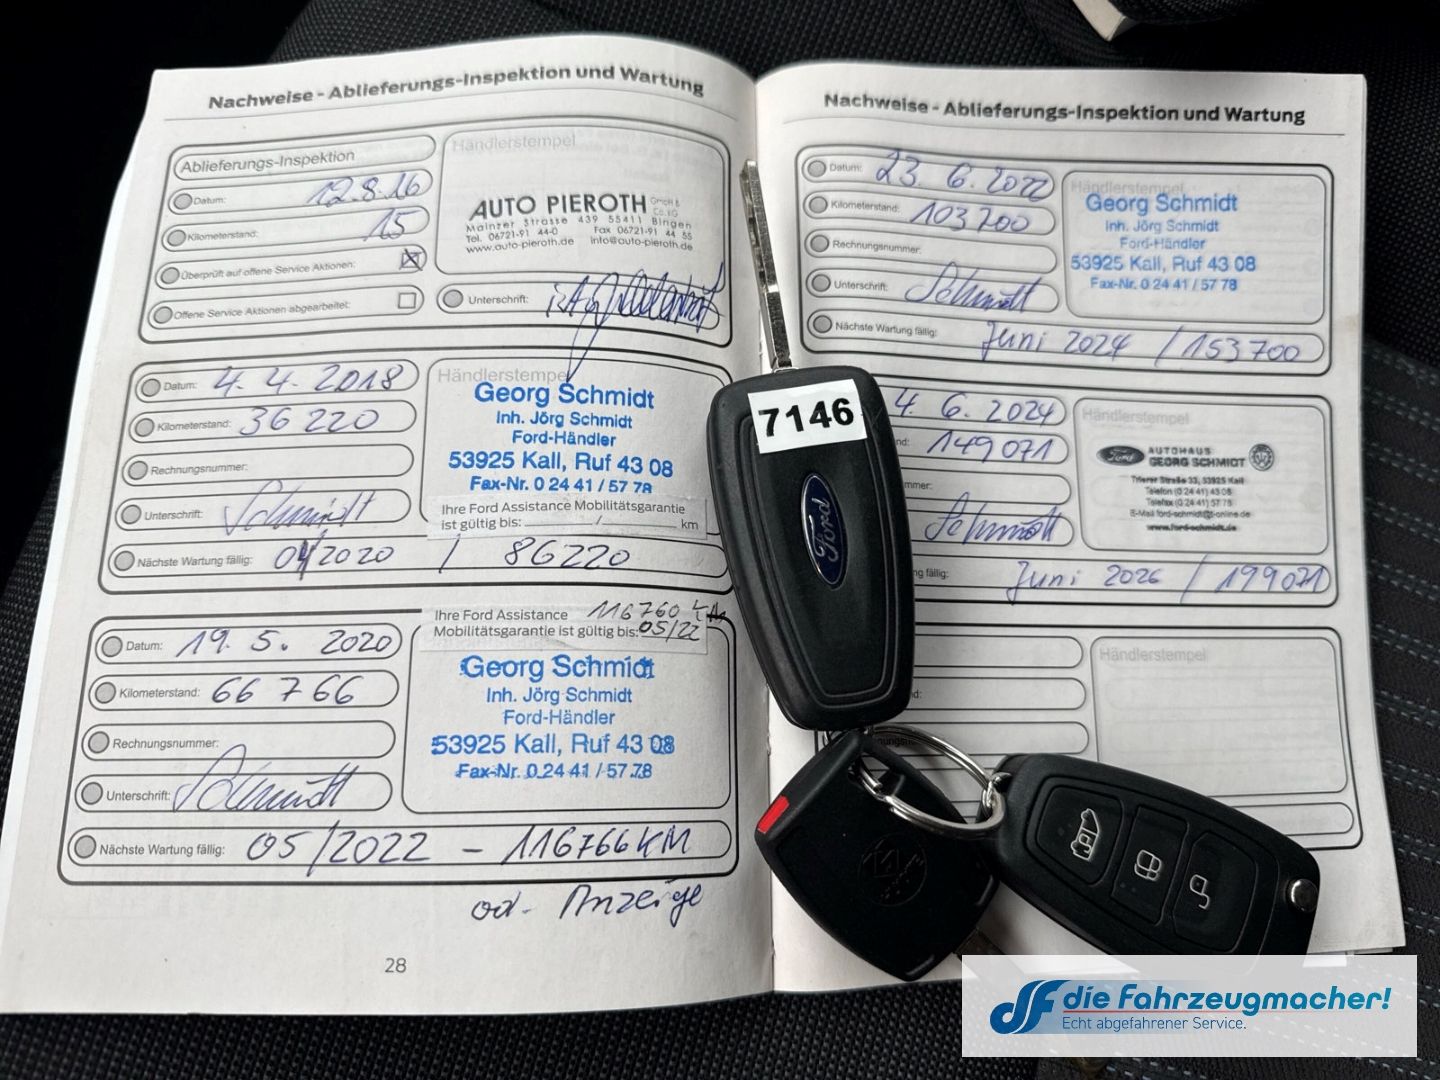 Nachweise - Ablieferungs-Inspektion und Wartung
Ablieferungs-Inspektion
Datum: 12.8.16
Kilometerstand: 15
Überprüft auf offene Service Aktionen:
Offene Service Aktionen abgearbeitet:
Händlerstempel
AUTO PIEROTH GmbH & Co. KG
Mainzer Strasse 439 55411 Bingen
Tel. 06721-91 44-0 Fax 06721-91 44 55
www.auto-pieroth.de info@auto-pieroth.de
Unterschrift:
Datum: 4. 4. 2018
Kilometerstand: 36 220
Rechnungsnummer:
Unterschrift: Schmidt
Nächste Wartung fällig: 04/2020 / 86220
Händlerstempel
Georg Schmidt
Inh. Jörg Schmidt
Ford-Händler
53925 Kall, Ruf 43 08
Fax-Nr. 0 24 41 / 57 78
Ihre Ford Assistance Mobilitätsgarantie
ist gültig bis: / km
Datum: 19. 5. 2020
Kilometerstand: 66 766
Rechnungsnummer:
Unterschrift: Schmidt
Nächste Wartung fällig: 05/2022 - 116766 KM
od. Anzeige
Ihre Ford Assistance 116760 km
Mobilitätsgarantie ist gültig bis: 05/22
Georg Schmidt
Inh. Jörg Schmidt
Ford-Händler
53925 Kall, Ruf 43 08
Fax-Nr. 0 24 41 / 57 78
28
Nachweise - Ablieferungs-Inspektion und Wartung
Datum: 23. 6. 2022
Kilometerstand: 103700
Rechnungsnummer:
Unterschrift: Schmidt
Nächste Wartung fällig: Juni 2024 / 153700
Händlerstempel
Georg Schmidt
Inh. Jörg Schmidt
Ford-Händler
53925 Kall, Ruf 43 08
Fax-Nr. 0 24 41 / 57 78
4. 6. 2024
nd: 149071
mmer:
Schmidt
ng fällig: Juni 2026 / 199071
Händlerstempel
Ford AUTOHAUS
GEORG SCHMIDT
Trierer Straße 33, 53925 Kall
Telefon (0 24 41) 43 08
Telefax (0 24 41) 57 78
E-Mail ford-schmidt@t-online.de
www.ford-schmidt.de
Händlerstempel
nd:
7146
Ford
die Fahrzeugmacher!
Echt abgefahrener Service.